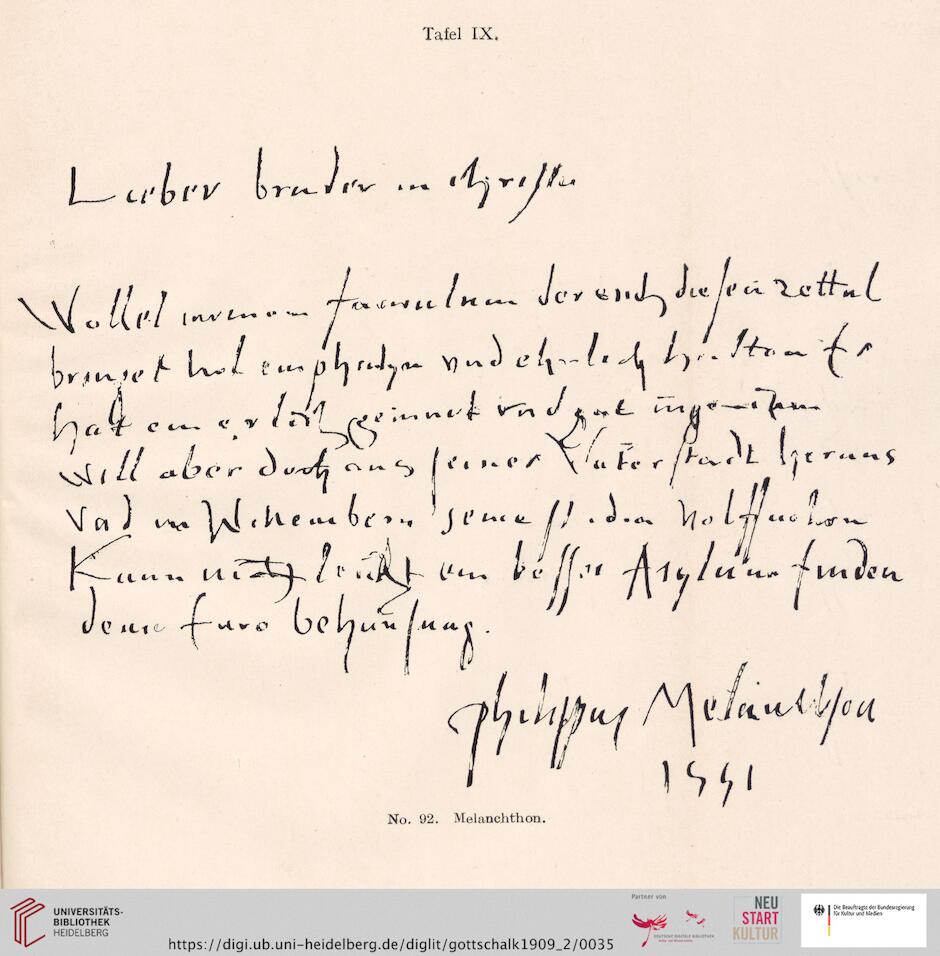 Tafel IX.
Lieber bruder in christo
Wollet meinem famulum der euch diesen zettel
bringet wol emphahen vnd ehrlich halten Er
hatt ein erlich gemut vnd gut ingenium
will aber doch aus seiner Vaterstadt heraus
Vnd in Wittemberg
Kann nicht leicht ein besser Asylum finden
denn Eure behaussung.
Philippus Melanthon
1551
No. 92. Melanchthon.
UNIVERSITÄTS-
BIBLIOTHEK
HEIDELBERG
https://digi.ub.uni-heidelberg.de/diglit/gottschalk1909_2/0035
Partner von
DEUTSCHE DIGITALE BIBLIOTHEK
Kultur und Wissen online
NEU
START
KULTUR
Die Beauftragte der Bundesregierung
für Kultur und Medien